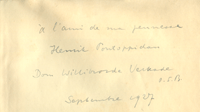 à l'ami de ma jeunesse
Henrik Pontoppidan
Dom Willibrord Verkade
O.S.B.
Septembre 1927